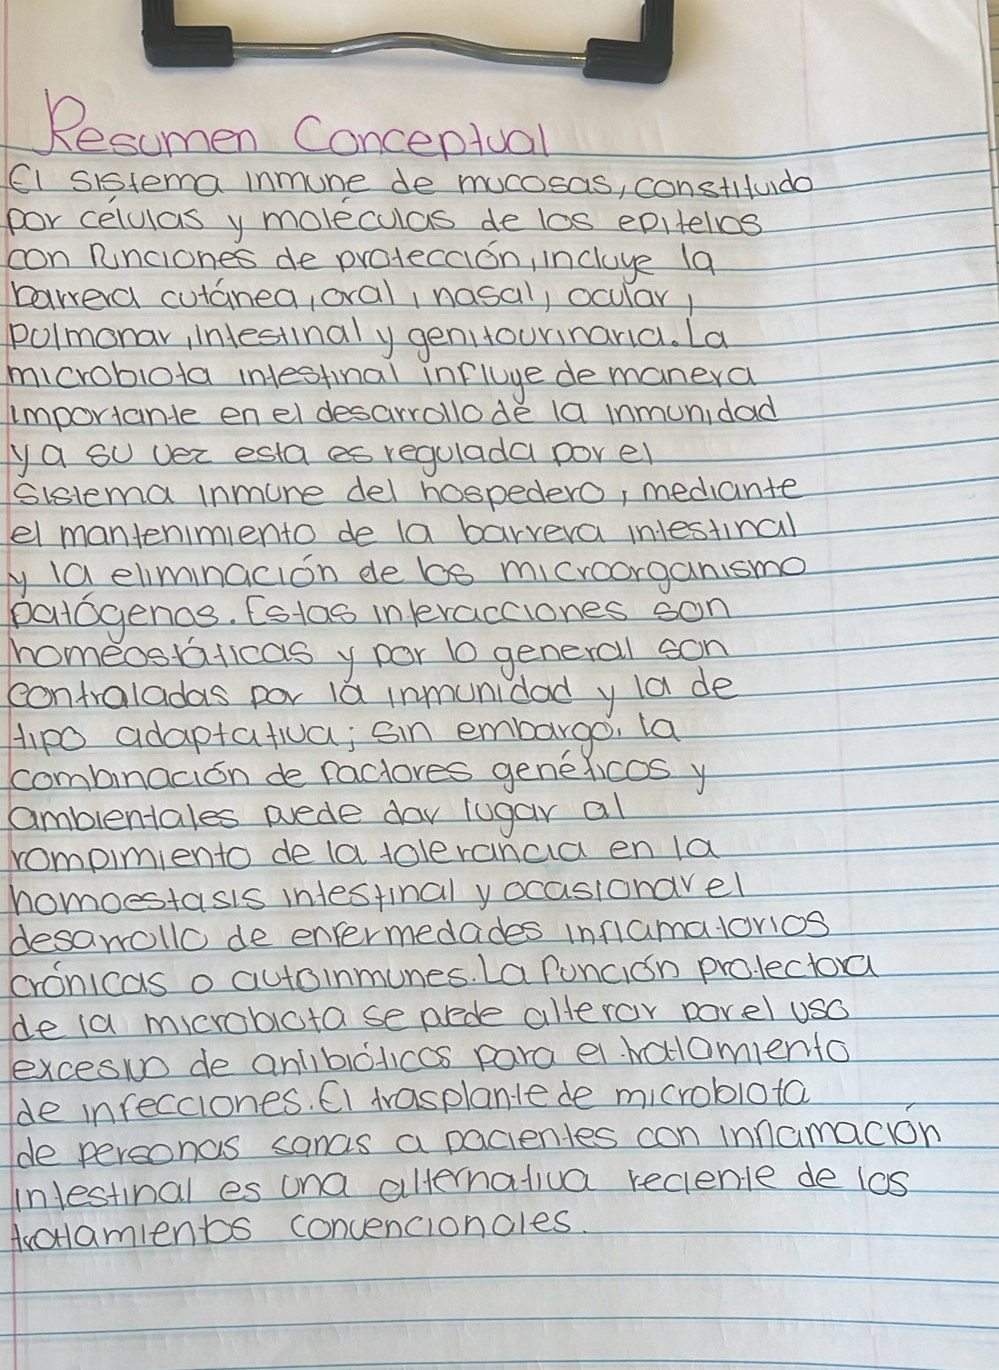 Resumen Conceptual
El sistema inmune de mucosas, constituido
por células y moléculas de los epitelios
con funciones de protección, incluye la
barrera cutánea, oral, nasal, ocular,
pulmonar, intestinal y genitourinaria. La
microbiota intestinal influye de manera
importante en el desarrollo de la inmunidad
y a su vez esta es regulada por el
sistema inmune del hospedero, mediante
el mantenimiento de la barrera intestinal
y la eliminación de los microorganismo
patógenos. Estas interacciones son
homeostáticas y por lo general son
controladas por la inmunidad y la de
tipo adaptativa; sin embargo, la
combinación de factores genéticos y
ambientales puede dar lugar al
rompimiento de la tolerancia en la
homoestasis intestinal y ocasionar el
desarrollo de enfermedades inflamatorios
crónicas o autoinmunes. La función protectora
de la microbiota se puede alterar por el uso
excesivo de antibióticos para el tratamiento
de infecciones. El trasplante de microbiota
de personas sanas a pacientes con inflamación
intestinal es una alternativa reciente de los
tratamientos convencionales.